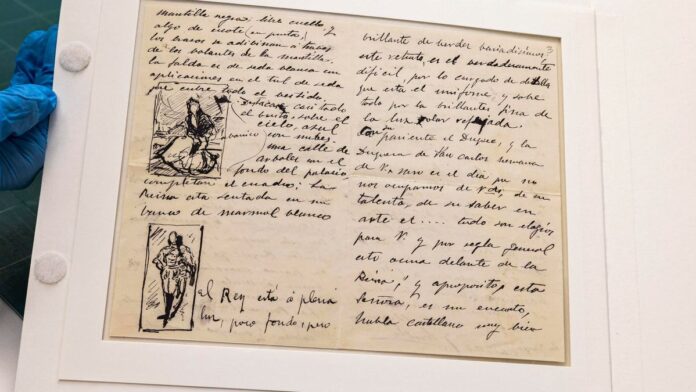 mantilla negra, libre cuello y
algo de escote (en punta) y
los brazos se adivinan á traves
de los volantes de la mantilla.
la falda es de seda blanca con
aplicaciones en el tul de seda
que cubre todo el vestido
casi todo
el busto, sobre el
cielo, azul
con nubes,
una calle de
arboles en el
fondo del palacio,
completan el cuadro; la
Reina está sentada en un
banco de marmol blanco
al Rey está á plena
luz, poco fondo, pero
3
brillante de verder variadisimos
este retrato, es el verdaderamente
dificil, por lo cargado de detalle
que está el uniforme y sobre
todo por la brillantes fina de
la luz solar reflejada.
Con su pariente el Duque, y la
Duquesa de San Carlos hermana
de raro es el dia que no
nos ocupamos de Vd; de su
talento, de su saber en
arte el .... todo son elogios
para V. y por regla general
esto ocurre delante de la
Reina; y aproposito, esta
Señora, es un encanto,
habla castellano muy bien